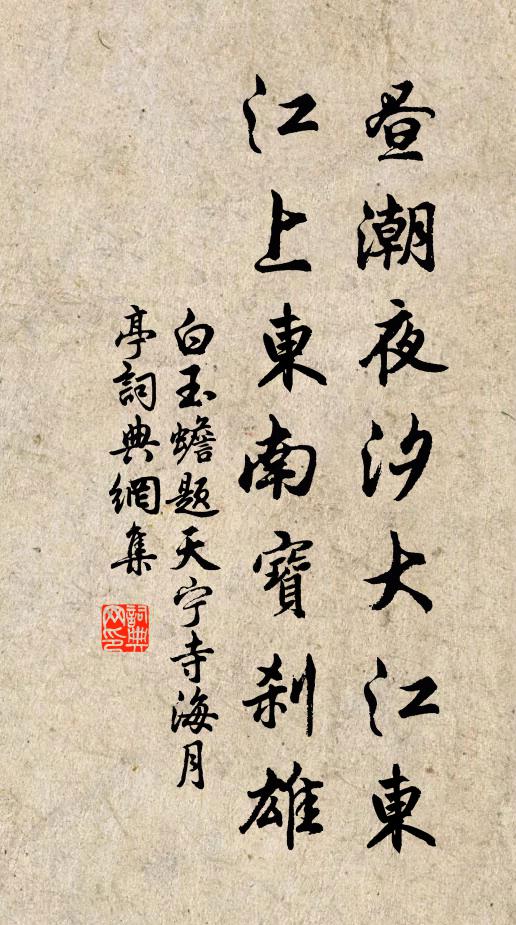 昼潮夜汐大江東
江上東南寶刹雄
白玉蟾题天宁寺海月
亭詞典網集
詞典
网印